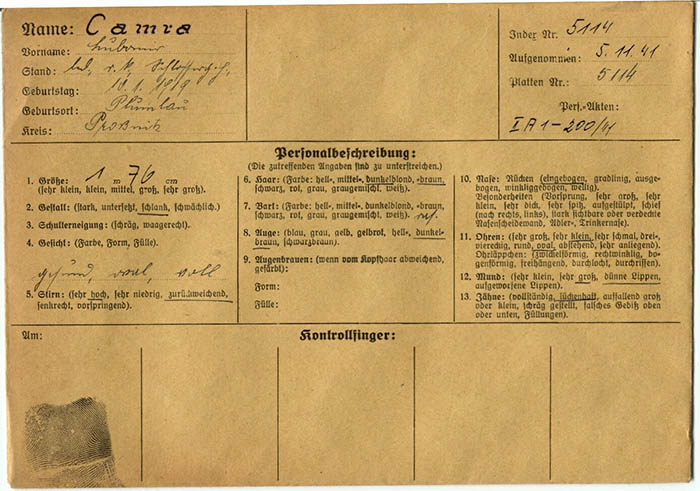 Name: Camra
Vorname: Lubomir
Stand: led, r. k, Schlossergeh,
Geburtstag: 10.1.1919
Geburtsort: Plumlau
Kreis: Proßnitz
Index Nr. 5114
Aufgenommen: 5.11.41
Platten Nr.: 5114
Pers.-Akten:
I A 1-200/41
Personalbeschreibung:
(Die zutreffenden Angaben sind zu unterstreichen.)
1. Größe: 1 m 76 cm
(sehr klein, klein, mittel, groß, sehr groß).
2. Gestalt: (stark, untersetzt, schlank, schwächlich.)
3. Schullerneigung: (schräg, waagerecht.)
4. Gesicht: (Farbe, Form, Fülle).
gesund, oval, voll
5. Stirn: (sehr hoch, sehr niedrig, zurückweichend,
senkrecht, vorspringend).
6. Haar: (Farbe: hell-, mittel-, dunkelblond, -braun,
schwarz, rot, grau, graugemischt, weiß).
7. Bart: (Farbe: hell-, mittel-, dunkelblond, -braun,
schwarz, rot, grau, graugemischt, weiß). ras.
8. Auge: (blau, grau, gelb, gelbrot, hell-, dunkel-
braun, schwarzbraun).
9. Augenbrauen: (wenn vom Kopfhaar abweichend,
gefärbt):
Form:
Fülle:
10. Nase: Rücken (eingebogen, gradlinig, ausge-
bogen, winkliggebogen, wellig).
Besonderheiten (Vorsprung, sehr groß, sehr
klein, sehr dick, sehr spitz, aufgestülpt, schief
(nach rechts, links), stark sichtbare oder verdeckte
Nasenscheidewand, Adler-, Trinkernase).
11. Ohren: (sehr groß, sehr klein, sehr schmal, drei-,
viereckig, rund, oval, abstehend, sehr anliegend).
Ohrläppchen: (zwickelförmig, rechtwinklig, bo-
genförmig, freihängend, durchlocht, durchrissen).
12. Mund: (sehr klein, sehr groß, dünne Lippen,
aufgeworfene Lippen).
13. Zähne: (vollständig, lückenhaft, auffallend groß
oder klein, schräg gestellt, falsches Gebiß oben
oder unten, Füllungen).
Am:
Kontrollfinger: